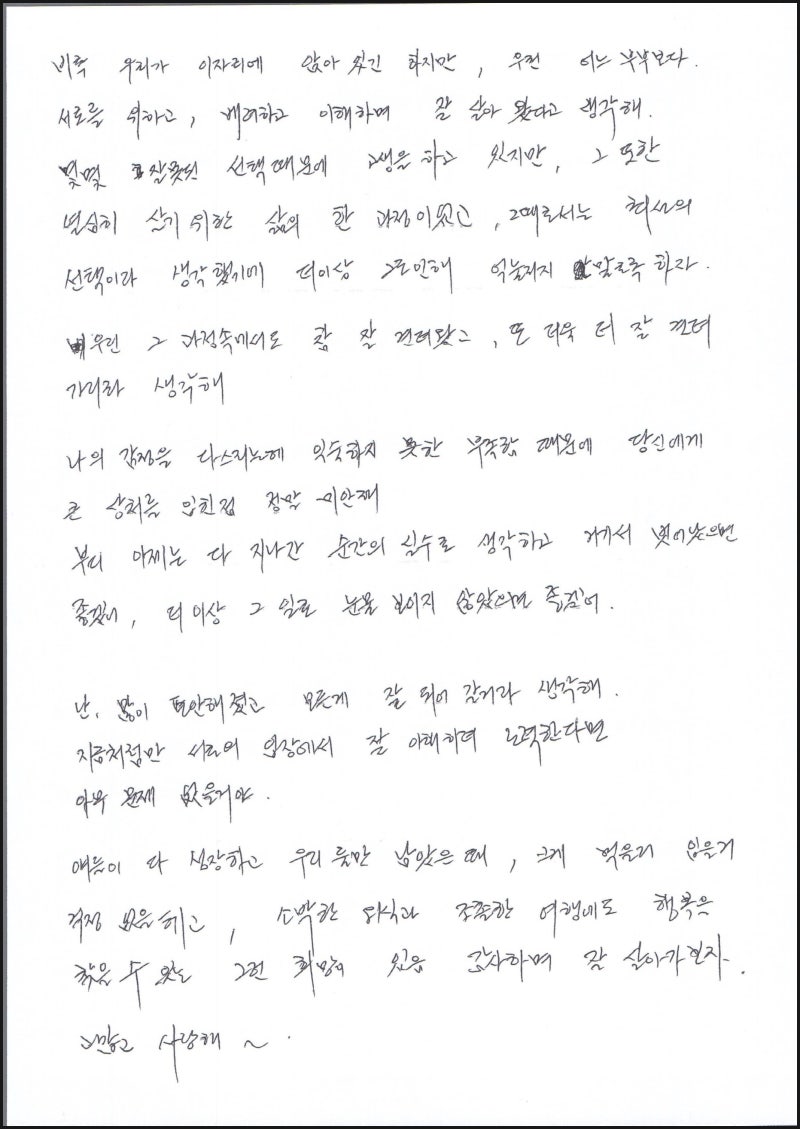 비록 우리가 이자리에 앉아 있긴 하지만, 우린 어느 부부보다.
서로를 위하고, 배려하고 이해하며 잘 살아 왔다고 생각해.
몇몇 잘못된 선택때문에 고생을 하고 있지만, 그 또한
열심히 살기 위한 삶의 한 과정이였고, 그때로서는 최선의
선택이라 생각했기에 더이상 그로인해 억눌리지 말도록 하자.
우린 그 과정속에서도 참 잘 견뎌왔고, 또 더욱 더 잘 견뎌
가리라 생각해
나의 감정을 다스리는데 익숙하지 못한 부족함 때문에 당신에게
큰 상처를 입힌점 정말 미안해
부디 이제는 다 지나간 순간의 실수로 생각하고 거기서 벗어났으면
좋겠어, 더이상 그 일로 눈물 보이지 않았으면 좋겠어.
난, 많이 편안해졌고 모든게 잘 되어 갈거라 생각해.
지금처럼만 서로의 입장에서 잘 이해하며 노력한다면
아무 문제 없을거야.
애들이 다 성장하고 우리 둘만 남았은때, 크게 먹을거 입을거
걱정 없을테고, 소박한 외식과 조촐한 여행에도 행복을
찾을 수 있는 그런 희망이 있음 감사하며 잘 살아가보자.
고맙고 사랑해 ~.